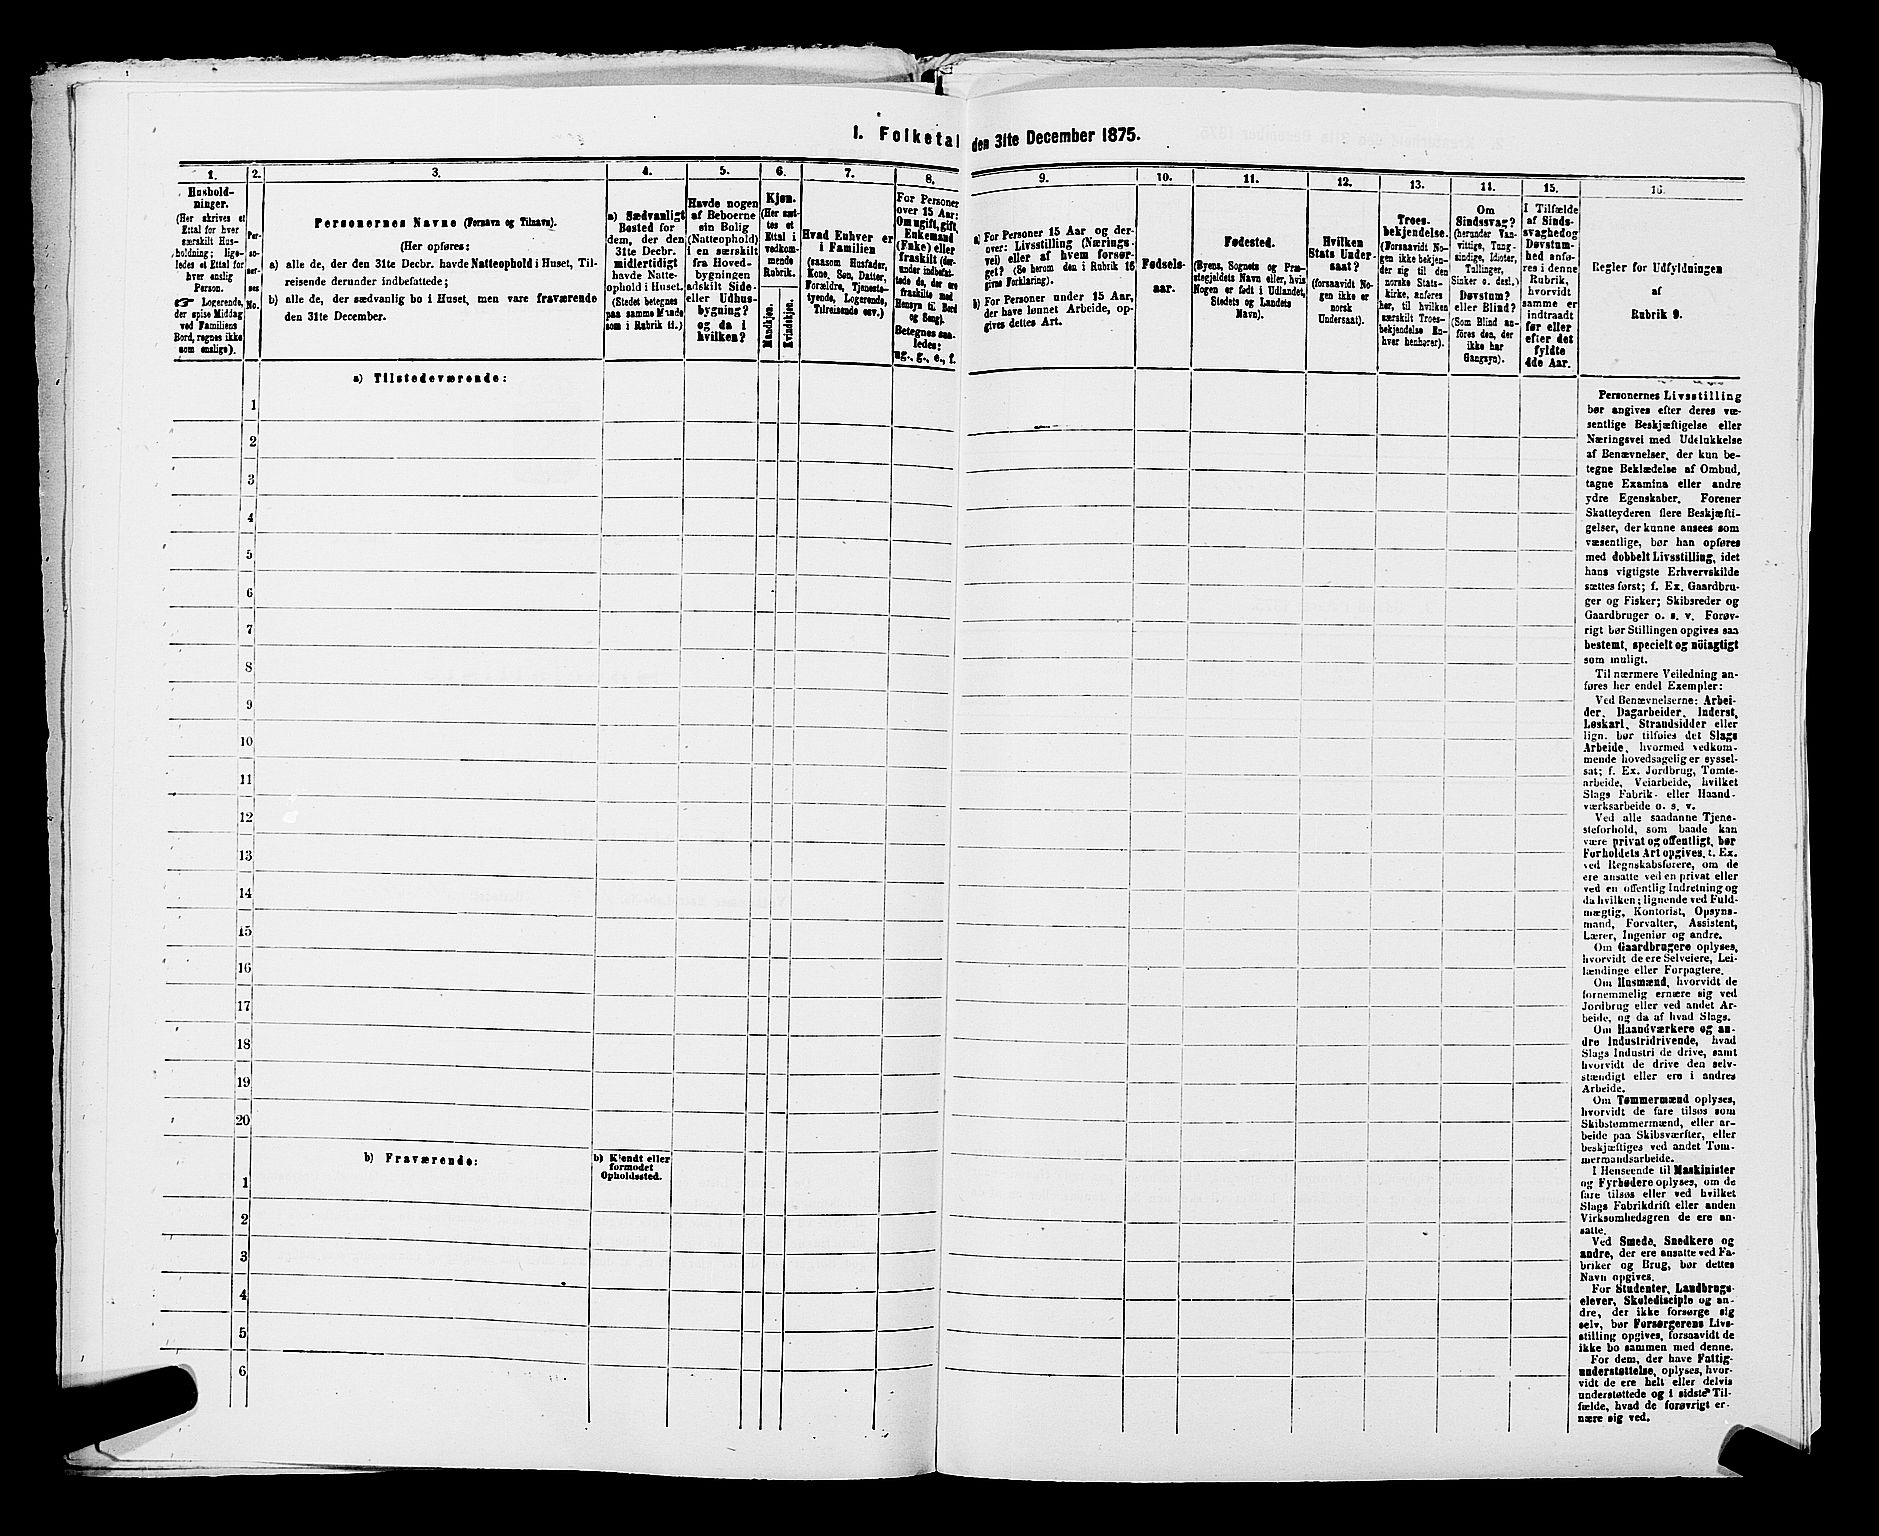 1. Folketal den 31te December 1875.
1.
Hushold-
ninger.
(Her skrives et
Ettal for hver
særskilt Hus-
holdning; lige-
ledes et Ettal for
hver enslig
Person.
☞ Logerende,
der spise Middag
ved Familiens
Bord, regnes ikke
som enslige).
2.
Per-
so-
ner-
nes
No.
3.
Personernes Navne (Fornavn og Tilnavn).
(Her opføres:
a) alle de, der den 31te Decbr. havde Natteophold i Huset, Til-
reisende derunder indbefattede;
b) alle de, der sædvanlig bo i Huset, men vare fraværende
den 31te December.
4.
a) Sædvanligt
Bosted for
dem, der den
31te Decbr.
midlertidigt
havde Natte-
ophold i Huset.
(Stedet betegnes
paa samme Maade
som i Rubrik 11.)
5.
Havde nogen
af Beboerne
sin Bolig
(Natteophold)
i en særskilt
fra Hoved-
bygningen
adskilt Side-
eller Udhus-
bygning?
og da i
hvilken?
6.
Kjøn.
(Her sæt-
tes et
Ettal i
vedkom-
mende
Rubrik.
Mandkjøn.
Kvindekjøn.
7.
Hvad Enhver er
i Familien
(saasom Husfader,
Kone, Søn, Datter,
Forældre, Tjeneste-
tyende, Logerende,
Tilreisende osv.)
8.
For Personer
over 15 Aar:
Om ugift, gift,
Enkemand
(Enke) eller
fraskilt (der-
under indbefat-
tede de, der ere
fraskilte med
Hensyn til Bord
og Seng).
Betegnes saa-
ledes:
ug., g., e., f.
9.
a) For Personer 15 Aar og der-
over: Livsstilling (Nærings-
vei) eller af hvem forsør-
get? (Se herom den i Rubrik 16
givne Forklaring).
b) For Personer under 15 Aar,
der have lønnet Arbeide, op-
gives dettes Art.
10.
Fødsels-
aar.
11.
Fødested.
(Byens, Sognets og Præ-
stegjeldets Navn eller, hvis
Nogen er født i Udlandet,
Stedets og Landets
Navn).
12.
Hvilken
Stats Under-
saat?
(forsaavidt No-
gen ikke er
norsk
Undersaat).
13.
Troes-
bekjendelse.
(Forsaavidt No-
gen ikke bekjen-
der sig til den
norske Stats-
kirke, anføres
her, til hvilken
særskilt Troes-
bekjendelse En-
hver henhører).
14.
Om
Sindssvag?
(herunder Van-
vittige, Tung-
sindige, Idioter,
Tullinger,
Sinker o. desl.)
Døvstum?
eller Blind?
(Som Blind an-
føres den, der
ikke har
Gangsyn).
15.
I Tilfælde
af Sinds-
svaghed og
Døvstum-
hed anfø-
res i denne
Rubrik,
hvorvidt
samme er
indtraadt
før eller
efter det
fyldte
4de Aar.
16.
Regler for Udfyldningen
af
Rubrik 9.
a) Tilstedeværende:
1
2
3
4
5
6
7
8
9
10
11
12
13
14
15
16
17
18
19
20
b) Fraværende:
b) Kjendt eller
formodet
Opholdssted.
1
2
3
4
5
6
Personernes Livsstilling
bør angives efter deres væ-
sentlige Beskjæftigelse eller
Næringsvei med Udelukkelse
af Benævnelser, der kun be-
tegne Beklædelse af Ombud,
tagne Examina eller andre
ydre Egenskaber. Forener
Skatteyderen flere Beskjæfti-
gelser, der kunne ansees som
væsentlige, bør han opføres
med dobbelt Livsstilling, idet
hans vigtigste Erhvervskilde
sættes først; f. Ex. Gaardbru-
ger og Fisker; Skibsreder og
Gaardbruger o. s. v. Forøv-
rigt bør Stillingen opgives saa
bestemt, specielt og nöiagtigt
som muligt.
Til nærmere Veiledning an-
føres her endel Exempler:
Ved Benævnelserne: Arbei-
der, Dagarbeider, Inderst,
Løskarl, Strandsidder eller
lign. bør tilføies det Slags
Arbeide, hvormed vedkom-
mende hovedsagelig er syssel-
sat; f. Ex. Jordbrug, Tømte-
arbeide, Veiarbeide, hvilket
Slags Fabrik- eller Haand-
værksarbeide o. s. v.
Ved alle saadanne Tjene-
steforhold, som baade kan
være privat og offentligt, bør
Forholdets Art opgives, t. Ex.
ved Regnskabsførere, om de
ere ansatte ved en privat eller
ved en offentlig Indretning og
da hvilken; lignende ved Fuld-
mægtig, Kontorist, Opsyns-
mand, Forvalter, Assistent,
Lærer, Ingeniør og andre.
Om Gaardbrugere oplyses,
hvorvidt de ere Selveiere, Lei-
lændinge eller Forpagtere.
Om Husmænd, hvorvidt de
fornemmelig ernære sig ved
Jordbrug eller ved andet Ar-
beide, og da af hvad Slags.
Om Haandværkere og an-
dre Industridrivende, hvad
Slags Industri de drive, samt
hvorvidt de drive den selv-
stændigt eller ere i andres
Arbeide.
Om Tømmermænd oplyses,
hvorvidt de fare tilsøs som
Skibstømmermænd, eller ar-
beide paa Skibsværfter, eller
beskjæftiges ved andet Tøm-
mermandsarbeide.
I Henseende til Maskinister
og Fyrbødere oplyses, om de
fare tilsøs eller ved hvilket
Slags Fabrikdrift eller anden
Virksomhedsgren de ere an-
satte.
Ved Smede, Snedkere og
andre, der ere ansatte ved Fa-
briker og Brug, bør dettes
Navn opgives.
For Studenter, Landbrugs-
elever, Skoledisciple og an-
dre, der ikke forsørge sig
selv, bør Forsørgerens Livs-
stilling opgives, forsaavidt de
ikke bo sammen med denne.
For dem, der have Fattig-
understøttelse, oplyses, hvor-
vidt de ere helt eller delvis
understøttede og i sidste Til-
fælde, hvad de forøvrigt er-
nære sig ved.